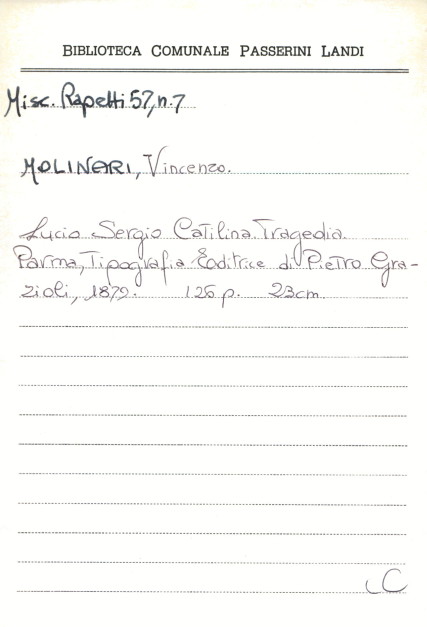 BIBLIOTECA COMUNALE PASSERINI LANDI
Misc. Rapetti 57, n. 7
MOLINARI, Vincenzo.
Lucio Sergio Catilina. Tragedia.
Parma, Tipografia Editrice di Pietro Gra-
zioli, 1879. 126 p. 23 cm.